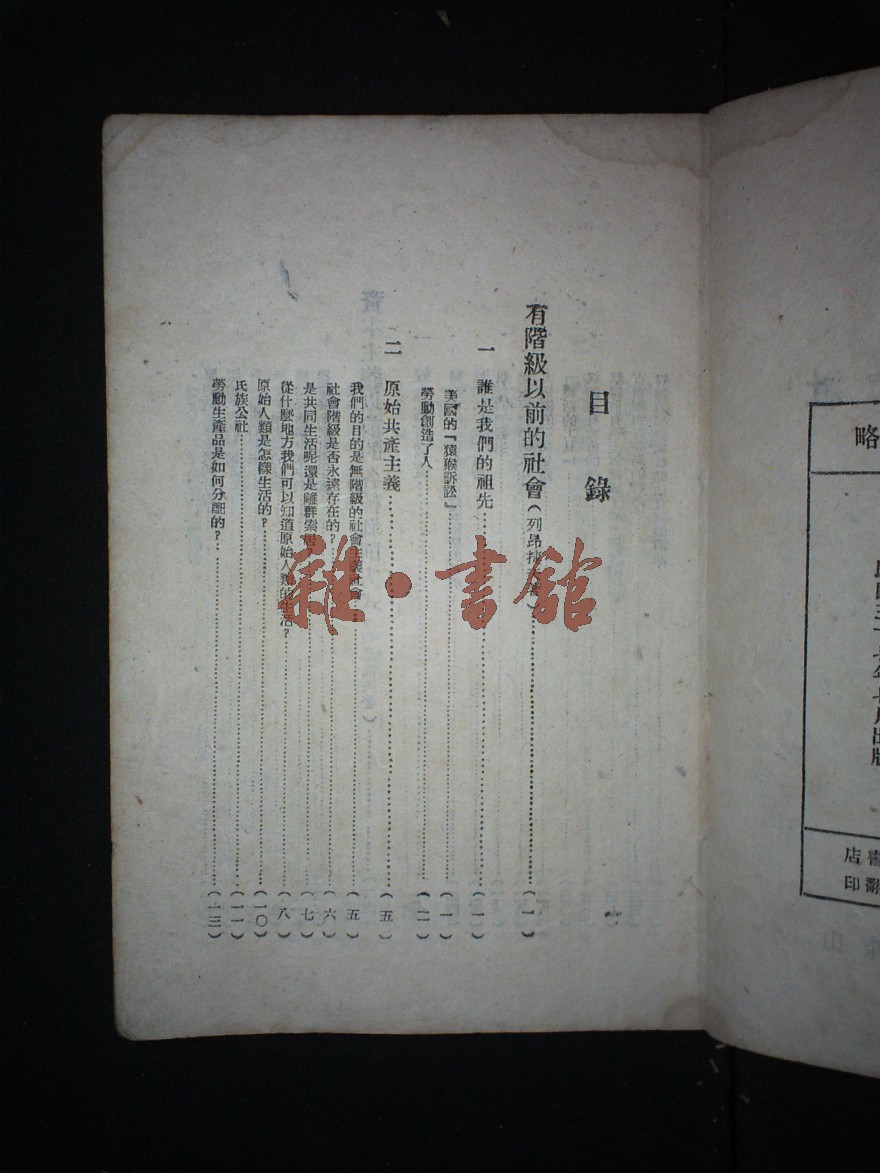 略
民國三十七年七月出版
書店
翻印
目錄
有階級以前的社會(列昂捷夫著)⋯⋯(一)
一 誰是我們的祖先⋯⋯(一)
美國的「猿猴訴訟」⋯⋯(一)
勞動創造了人⋯⋯(二)
二 原始共產主義⋯⋯(五)
我們的目的是無階級的社會主義社會⋯⋯(五)
社會階級是否永遠存在的?⋯⋯(六)
是共同生活呢還是離群索居⋯⋯(七)
從什麼地方我們可以知道原始人類的生活?⋯⋯(八)
原始人類是怎樣生活的?⋯⋯(一〇)
氏族公社⋯⋯(一一)
勞動生產品是如何分配的?⋯⋯(一三)
雜·書館